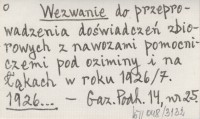 Wezwanie do przepro-
wadzenia doświadczeń zbio-
rowych z nawozami pomocni-
czemi pod oziminy i na
łąkach w roku 1926/7.
1926... – Gaz. Podh. 14, nr. 25.